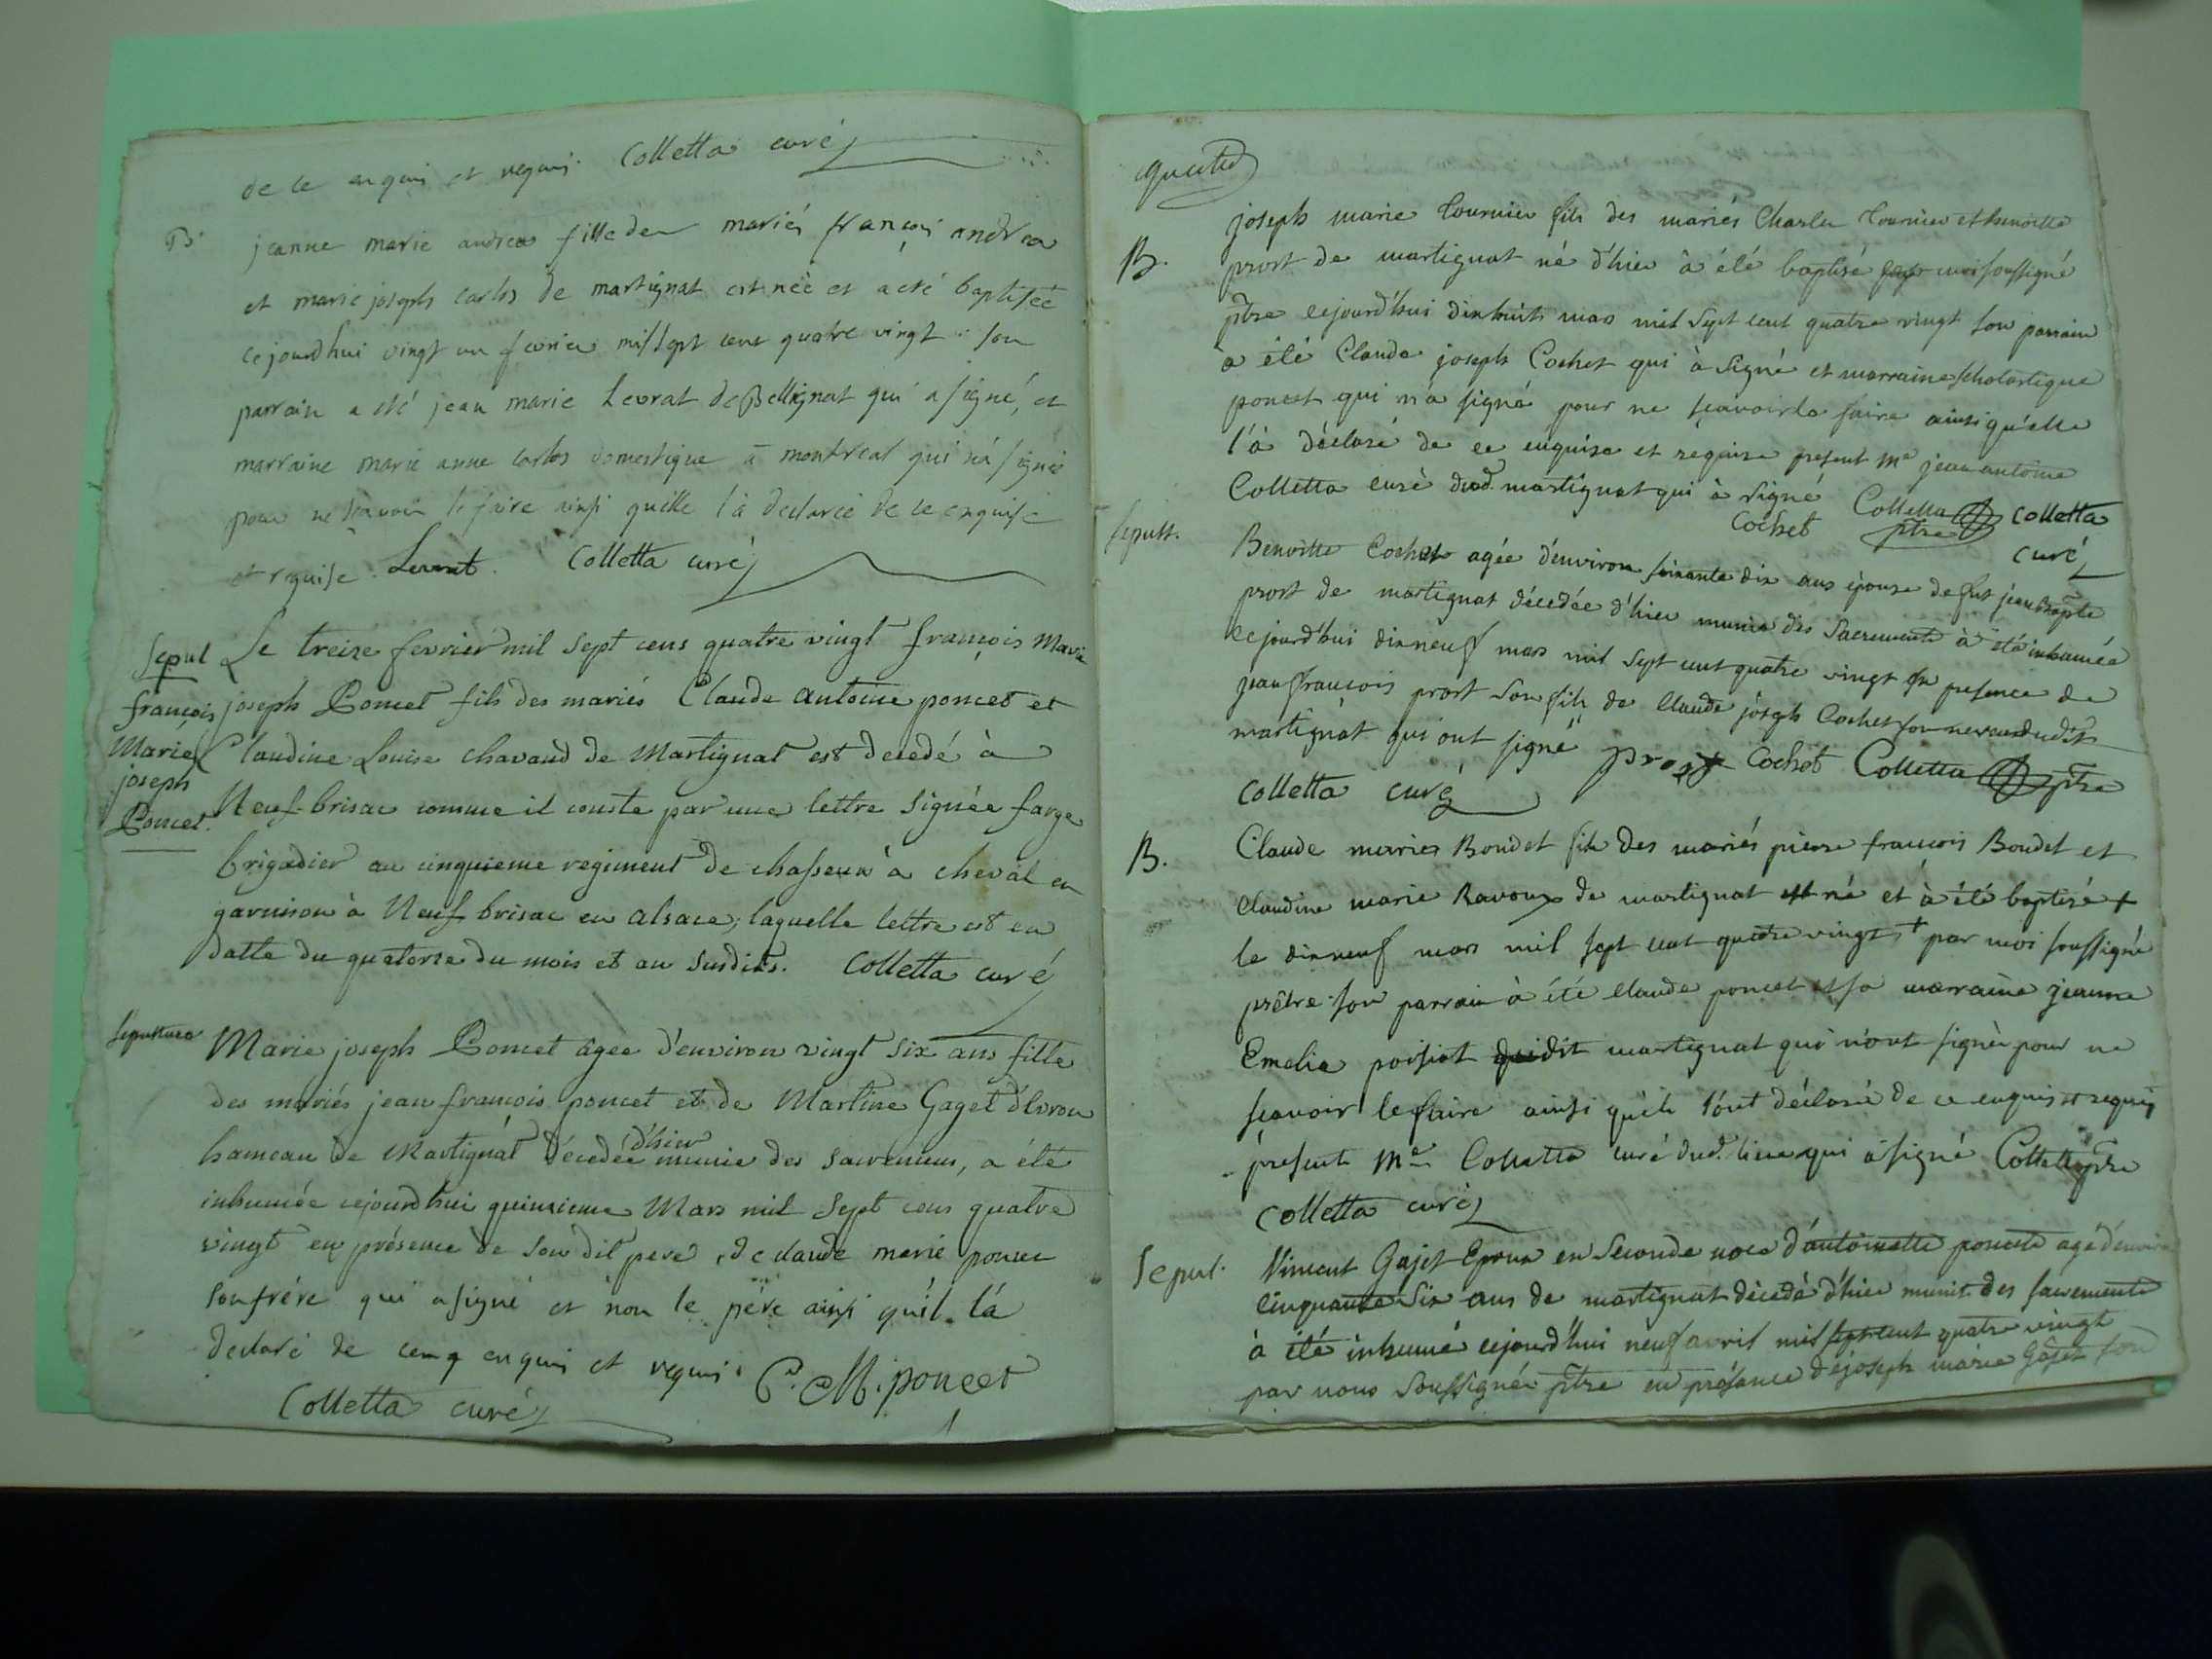 de ce enquis et requis. Colletta curé
B. jeanne marie andrea fille des mariés françois andrea
et marie joseph carlos de martignat est née et a eté baptisée
cejourdhui vingt un fevrier mil sept cent quatre vingt : son
parrain a eté jean marie Levrat de Bellignat qui a signé, et
marraine marie anne carlos domestique à montreal qui n'a signé
pour ne sçavoir le faire ainsi quelle l'a declaré de ce enquise
et requise. Levrat. Colletta curé
Sepul Le treize fevrier mil sept cens quatre vingt françois Marie
françois joseph Poncet fils des mariés Claude antoine poncet et
Marie Claudine Louise Chavand de Martignat est decedé à
joseph
Poncet. Neuf-brisac comme il conste par une lettre signée farge
brigadier au cinquieme regiment de chasseurs à cheval en
garnison à Neuf brisac en alsace, laquelle lettre est en
datte du quatorze du mois et an susdits. Colletta curé
sepulture Marie joseph Poncet âgée d'environ vingt six ans fille
des mariés jean françois poncet et de Martine Gaget d'Evron
hameau de Martignat décedée d'hier munie des sacremens, a été
inhumée cejourdhui quinzieme Mars mil sept cens quatre
vingt en présence de son dit pere, de claude marie poncet
son frére qui a signé et non le pére ainsi quil l'a
declaré de ce enquis et requis. C. M. poncet
Colletta curé
quatre
joseph marie Tournier fils des mariés Charles Tournier et benoitte
B. prost de martignat né d'hier à été baptisé par moi soussigné
ptre cejourd'hui dix huit mars mil sept cent quatre vingt son parrain
à été Claude joseph Cochet qui à signé et marraine scholastique
poncet qui n'a signé pour ne sçavoir le faire ainsi qu'elle
l'à déclaré de ce enquise et requise present Me jean antoine
Colletta curé dud. martignat qui à signé Colletta ptre Colletta
Cochet curé
sepult. Benoitte Cochet agée d'environ soixante dix ans épouse de fut jean Baptte
prost de martignat décedée d'hier munie des Sacrements à été inhumée
cejourd'hui dix neuf mars mil sept cent quatre vingt en presence de
jean françois prost son fils de Claude joseph Cochet son neveu dudit
martignat qui ont signé prost Cochet Colletta ptre
Colletta curé
B. Claude marie Bondet fils des mariés pierre françois Bondet et
Claudine marie Ravoux de martignat est né et à été baptisé +
le dix neuf mars mil sept cent quatre vingt + par moi soussigné
prêtre son parrain à été Claude poncet et sa marraine jeanne
Emelie martignat qui n'ont signé pour ne
sçavoir le faire ainsi qu'ils l'ont déclaré de ce enquis et requis
présent Me Colletta curé dud. lieu qui à signé Colletta ptre
Colletta curé
Sepul. Vincent Gajet Epoux en Seconde noce d'antoinette poncet agé d'environ
cinquante six ans de martignat décedé d'hier munit des sacrements
à été inhumé cejourd'hui neuf avril mil sept cent quatre vingt
par nous soussigné ptre en présence de joseph marie Gajet son